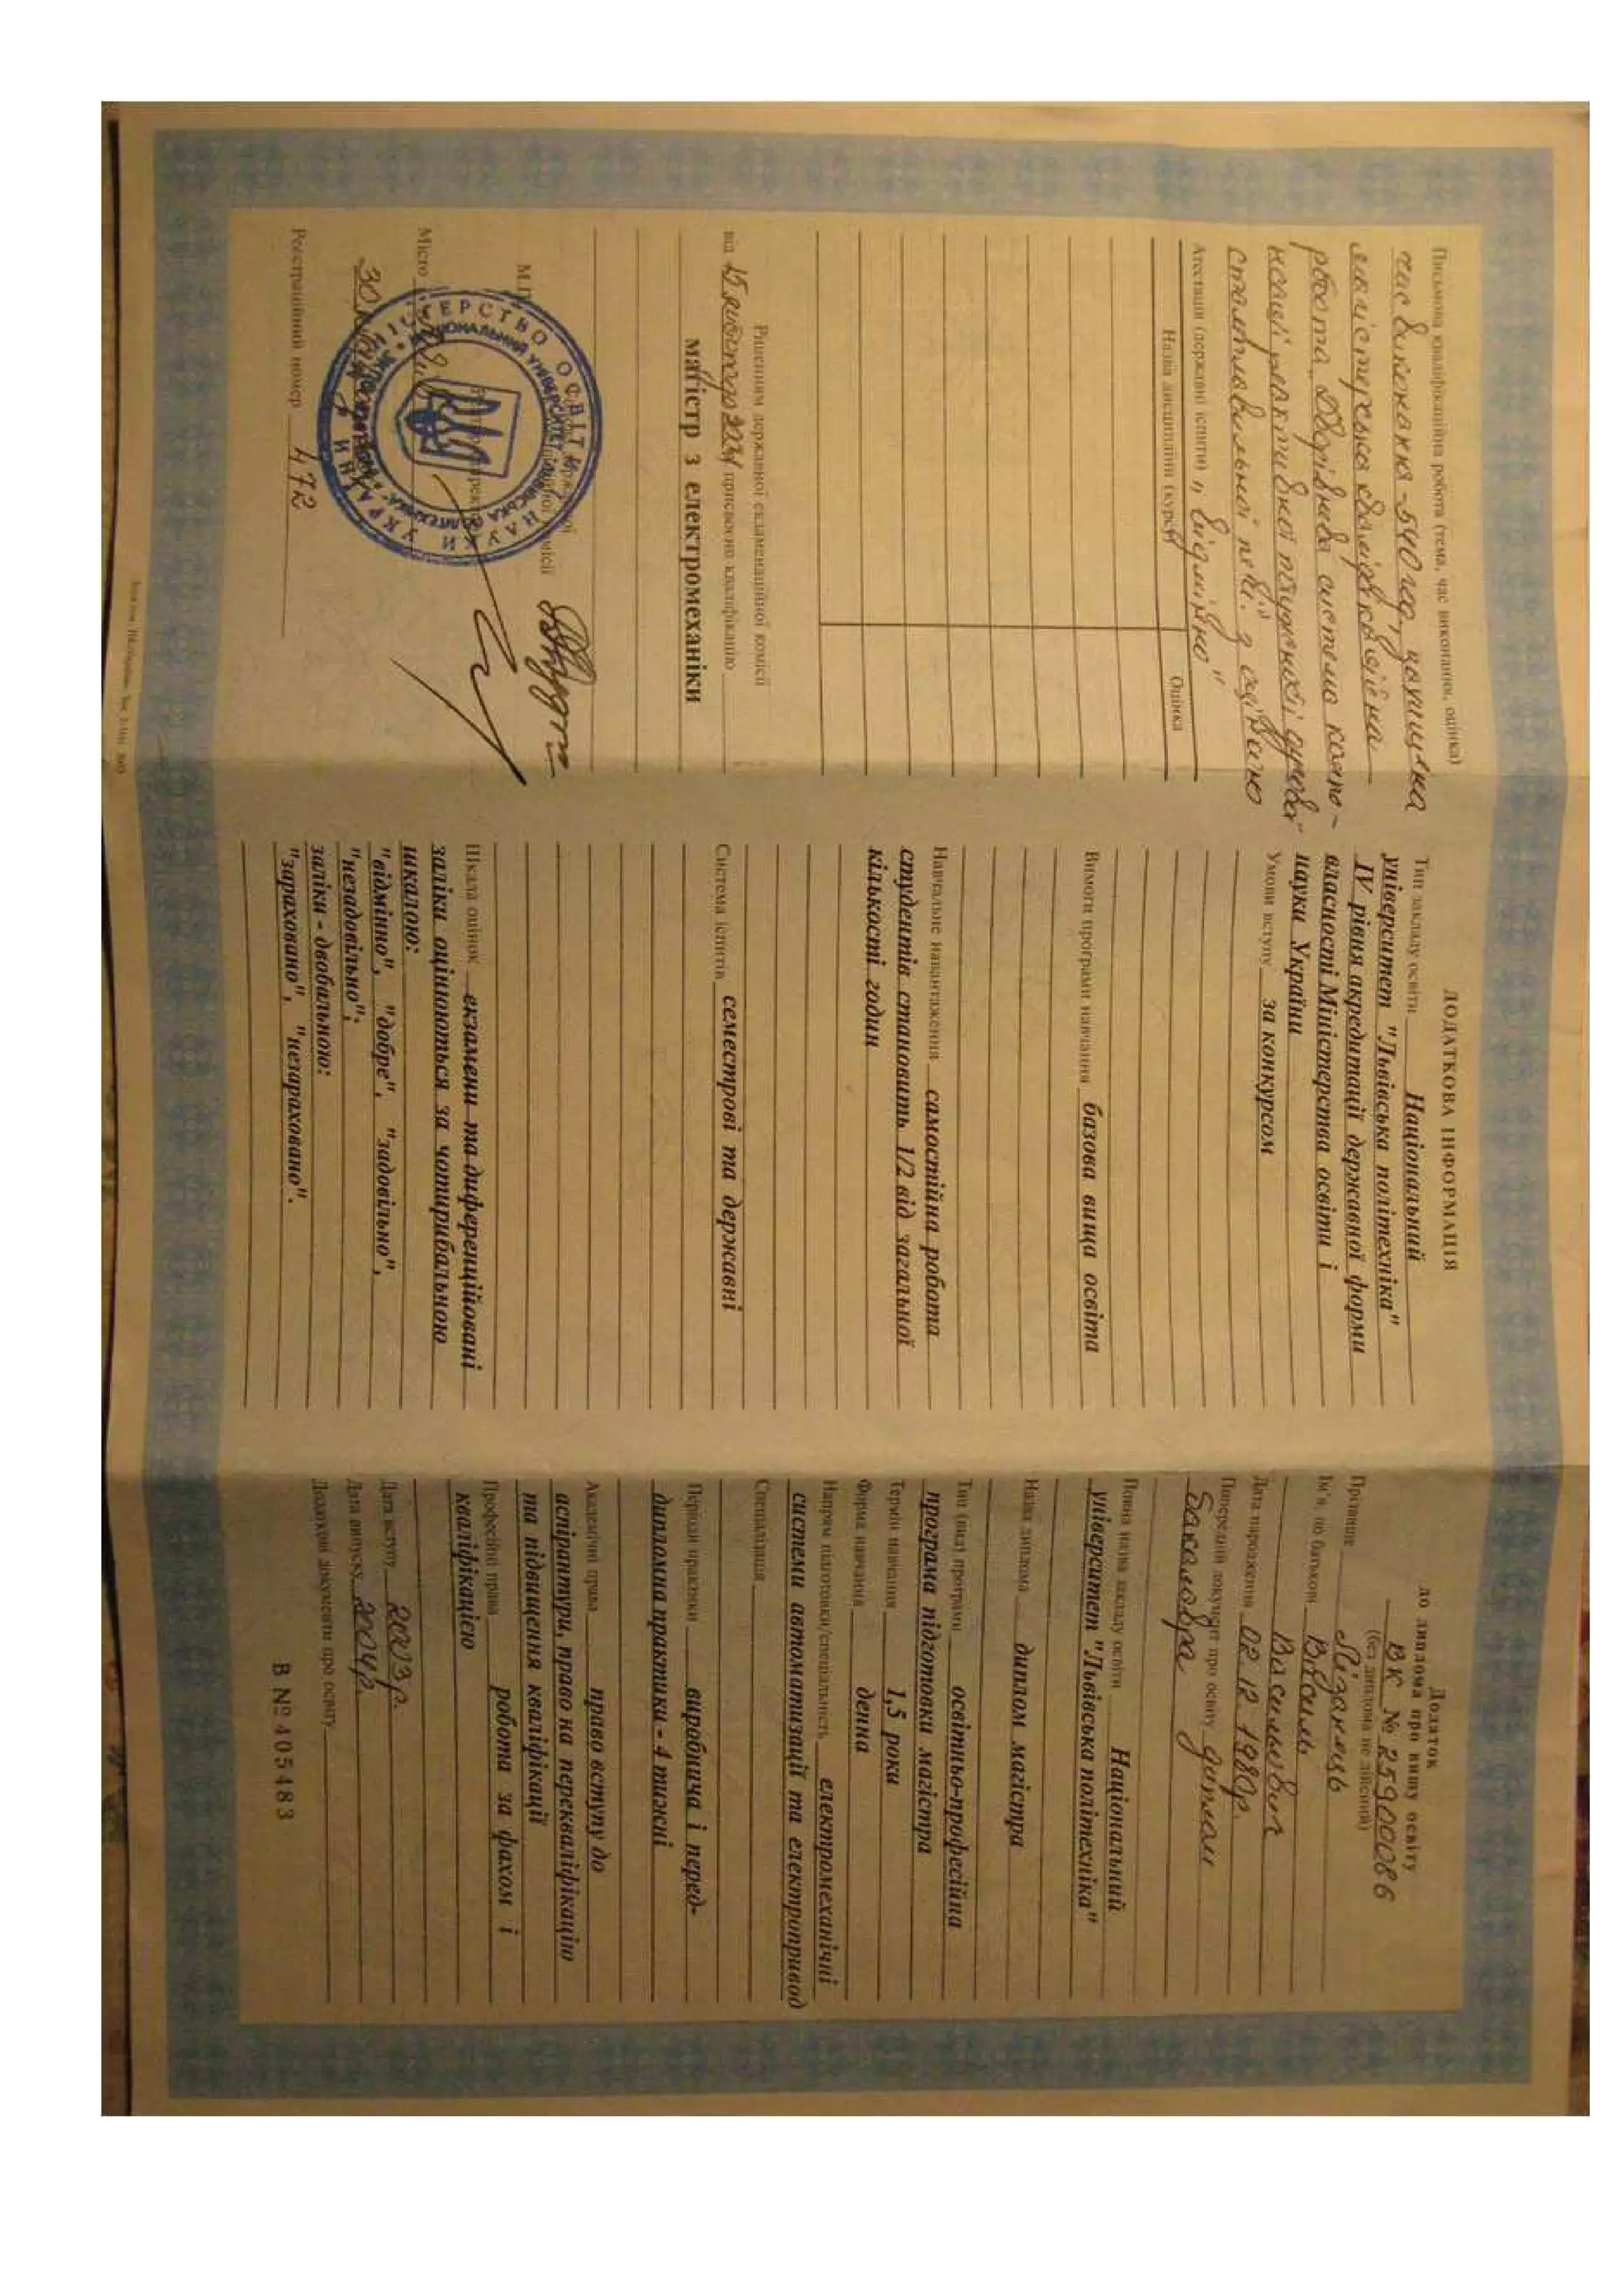 Письмова кваліфікаційна робота (тема, час виконання, оцінка)
час виконання - 540 год., захищена
магістерська кваліфікаційна
робота „Дворівнева система компе-
нсації реактивної потужності дугової
сталеплавильної печі" з оцінкою
Атестація (державні іспити) „відмінно"
Назва дисципліни (курсу) Оцінка
Рішенням державної екзаменаційної комісії
від 15 2004 присвоєно кваліфікацію
магістр з електромеханіки
М.П.
Місто
МІНІСТЕРСТВО ОСВІТИ І НАУКИ УКРАЇНИ
НАЦІОНАЛЬНИЙ УНІВЕРСИТЕТ "ЛЬВІВСЬКА ПОЛІТЕХНІКА"
Реєстраційний номер 472
ДОДАТКОВА ІНФОРМАЦІЯ
Тип закладу освіти Національний
університет "Львівська політехніка"
IV рівня акредитації державної форми
власності Міністерства освіти і
науки України
Умови вступу за конкурсом
Вимоги програми навчання базова вища освіта
Навчальне навантаження самостійна робота
студентів становить 1/2 від загальної
кількості годин
Система іспитів семестрові та державні
Шкала оцінок екзамени та диференційовані
заліки оцінюються за чотирибальною
шкалою:
"відмінно", "добре", "задовільно",
"незадовільно";
заліки - двобальною:
"зараховано", "незараховано".
Додаток
до диплома про вищу освіту
ВК № 25900086
(без диплома не дійсний)
Прізвище Лізанець
Ім'я, по батькові Василь
Васильович
Дата народження 02.12.1980р.
Попередній документ про освіту диплом
бакалавра
Повна назва закладу освіти Національний
університет "Львівська політехніка"
Назва диплома диплом магістра
Тип (вид) програми освітньо-професійна
програма підготовки магістра
Термін навчання 1,5 роки
Форма навчання денна
Напрям підготовки/спеціальність електромеханічні
системи автоматизації та електропривод
Спеціалізація
Періоди практики виробнича і перед-
дипломна практики - 4 тижні
Академічні права право вступу до
аспірантури, право на перекваліфікацію
та підвищення кваліфікації
Професійні права робота за фахом і
кваліфікацією
Дата вступу 2003р.
Дата випуску 2004р.
Додаткові документи про освіту
В №405483